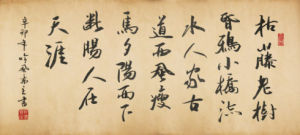 枯藤老樹
昏鴉小橋流
水人家古
道西風瘦
馬夕陽西下
斷腸人在
天涯
辛卯年 書